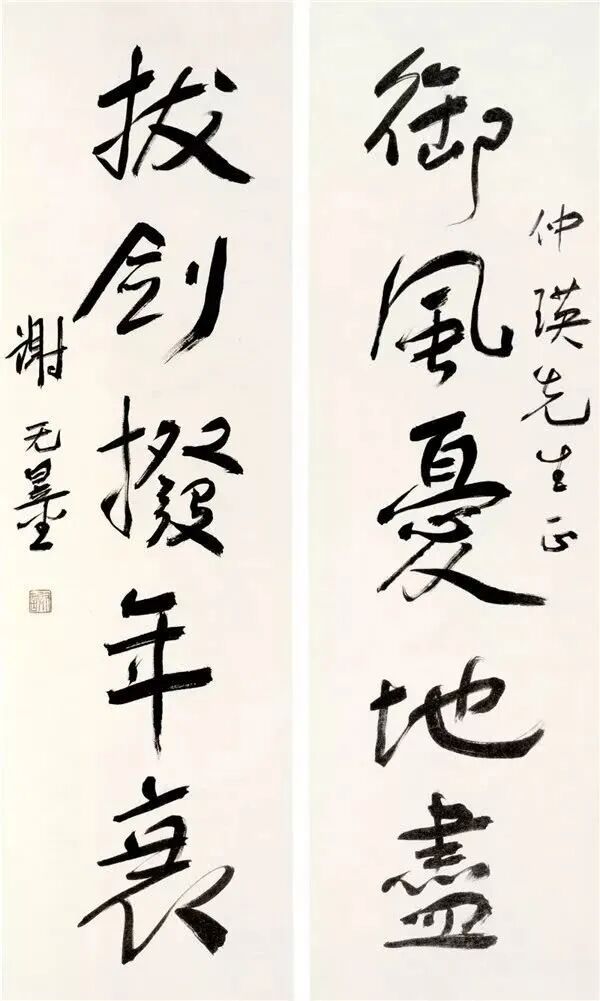 仲瑛先生正
御風憂地盡
拔劍撥年衰
謝无量